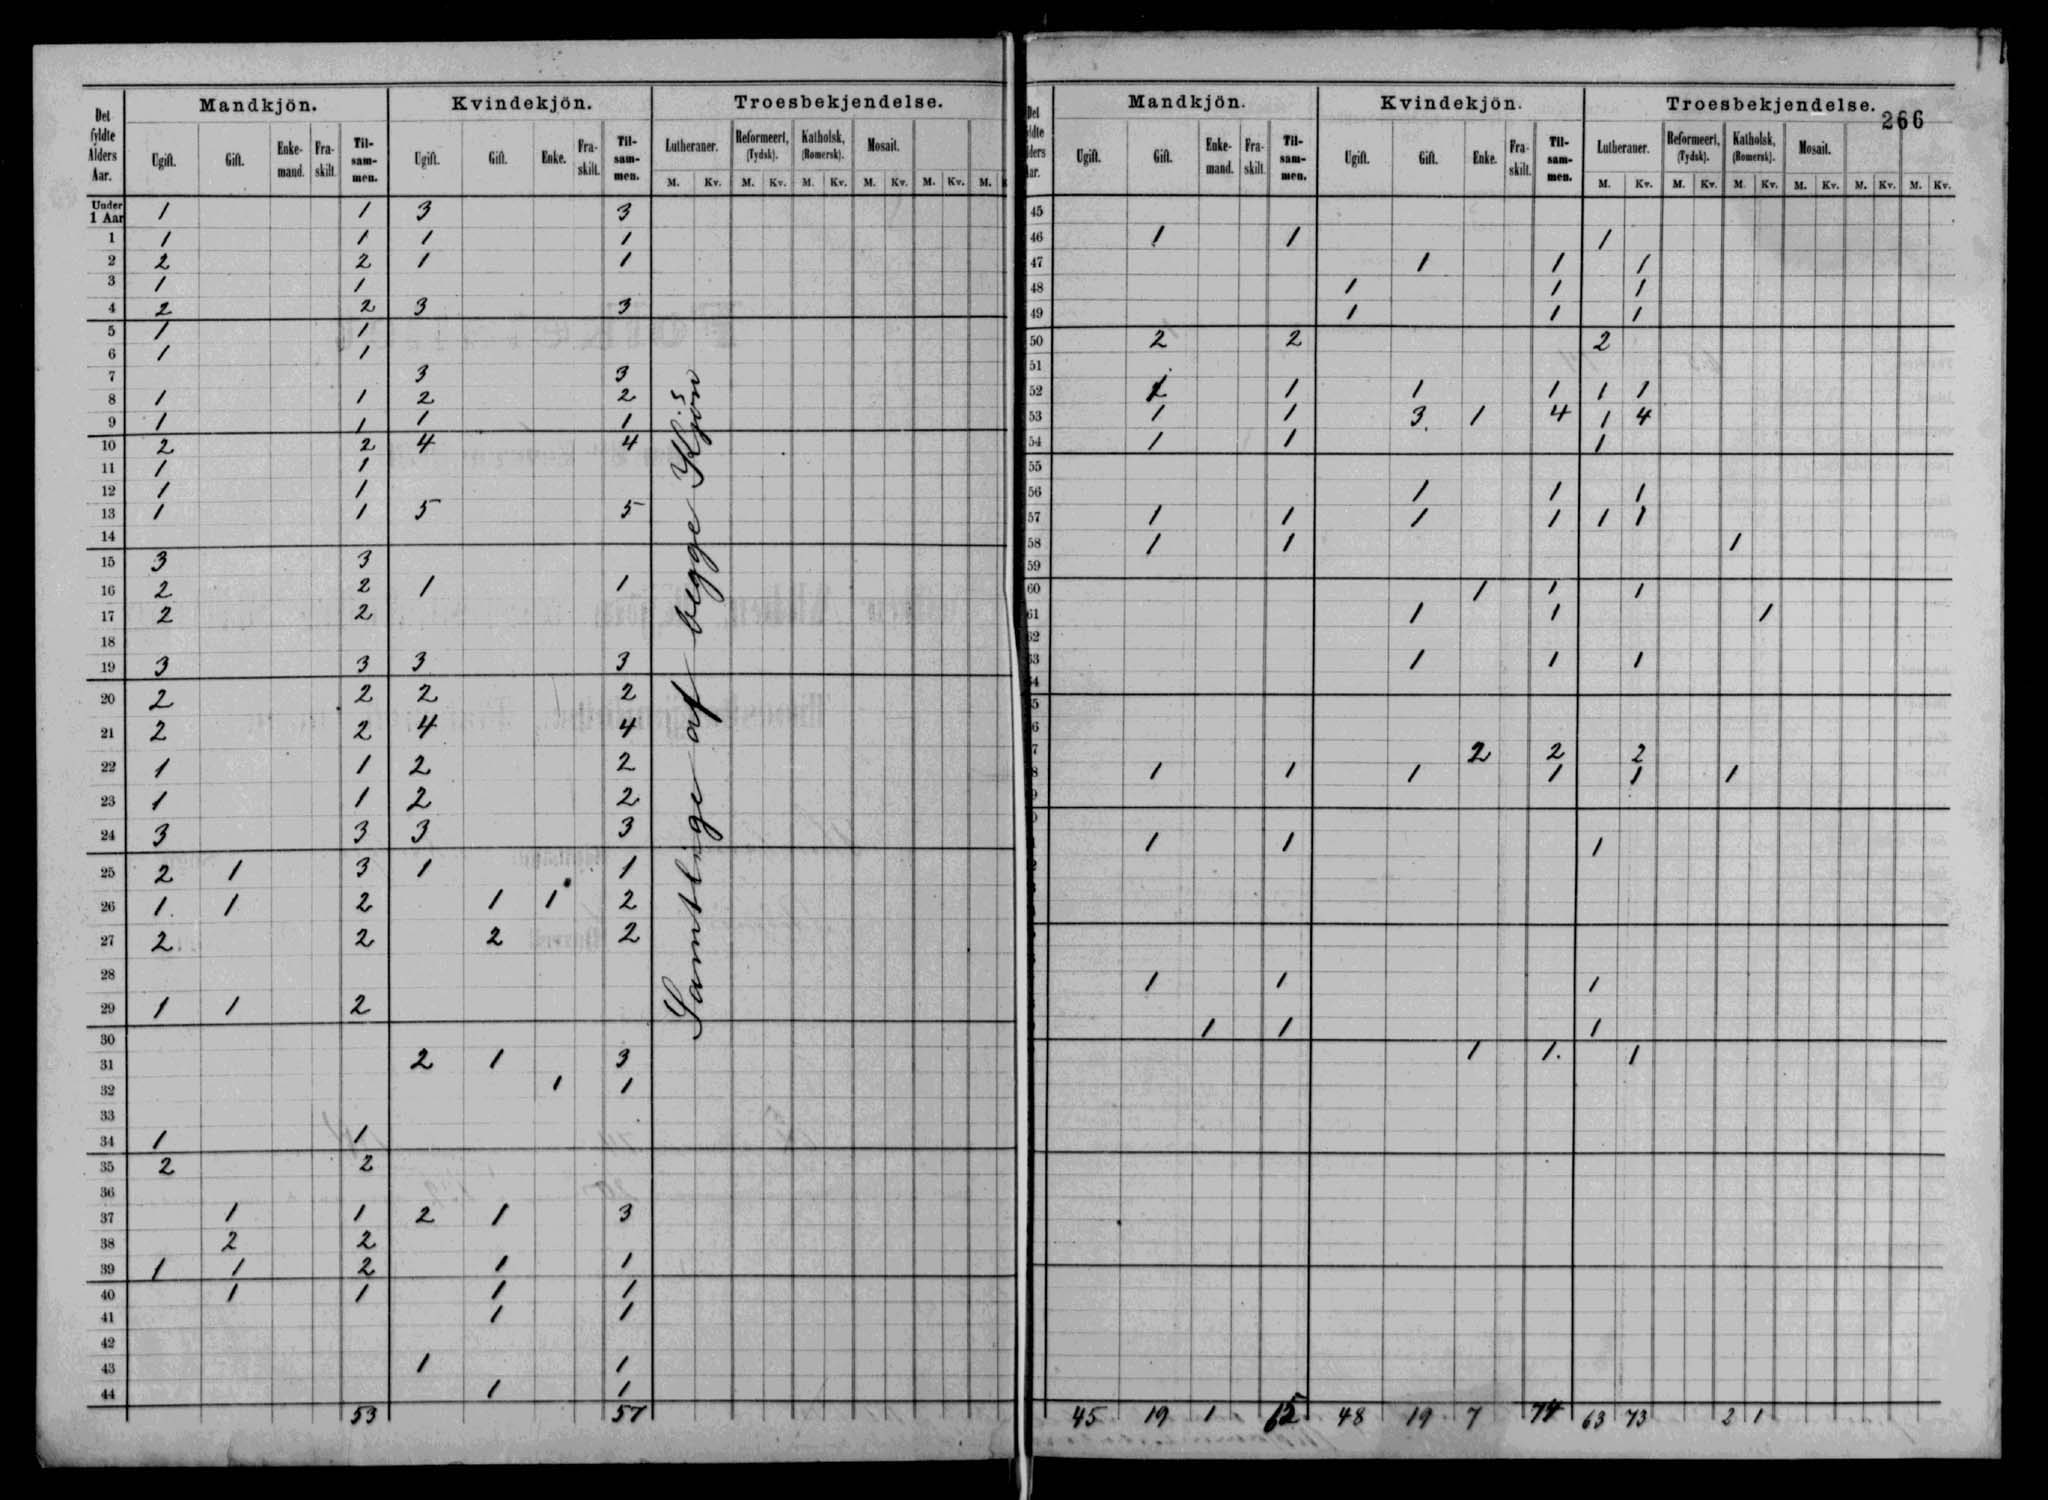 Mandkjön. Kvindekjön. Troesbekjendelse.
Det fyldte Alders Aar. Ugift. Gift. Enke-mand. Fra-skilt. Til-sam-men. Ugift. Gift. Enke. Fra-skilt. Til-sam-men. Lutheraner. Reformeert, (Tydsk). Katholsk, (Romersk). Mosait.
M. Kv. M. Kv. M. Kv. M. Kv. M. Kv. M.
Under 1 Aar 1 1 3 3
1 1 1 1 1
2 2 2 1 1
3 1 1
4 2 2 3 3
5 1 1
6 1 1
7 3 3
8 1 1 2 2
9 1 1 1 1
10 2 2 4 4
11 1 1
12 1 1
13 1 1 5 5
14
15 3 3
16 2 2 1 1
17 2 2
18
19 3 3 3 3
20 2 2 2 2
21 2 2 4 4
22 1 1 2 2
23 1 1 2 2
24 3 3 3 3
25 2 1 3 1 1
26 1 1 2 1 1 2
27 2 2 2 2
28
29 1 1 2
30
31 2 1 3
32 1 1
33
34 1 1
35 2 2
36
37 1 1 2 1 3
38 2 2
39 1 1 2 1 1
40 1 1 1 1
41 1 1
42
43 1 1
44 1 1
53 57
Samtlige af begge Kjøn
266
Mandkjön. Kvindekjön. Troesbekjendelse.
Ugift. Gift. Enke-mand. Fra-skilt. Til-sam-men. Ugift. Gift. Enke. Fra-skilt. Til-sam-men. Lutheraner. Reformeert, (Tydsk). Katholsk, (Romersk). Mosait.
M. Kv. M. Kv. M. Kv. M. Kv. M. Kv. M. Kv.
45
46 1 1 1
47 1 1 1
48 1 1 1
49 1 1 1
50 2 2 2
51
52 1 1 1 1 1 1
53 1 1 3 1 4 1 4
54 1 1 1
55
56 1 1 1
57 1 1 1 1 1 1
58 1 1 1
59
60 1 1 1
61 1 1 1
62
63 1 1 1
2 2 2
1 1 1 1 1 1
1 1 1
1 1 1
1 1 1
1 1 1
45 19 1 65 48 19 7 74 63 73 2 1